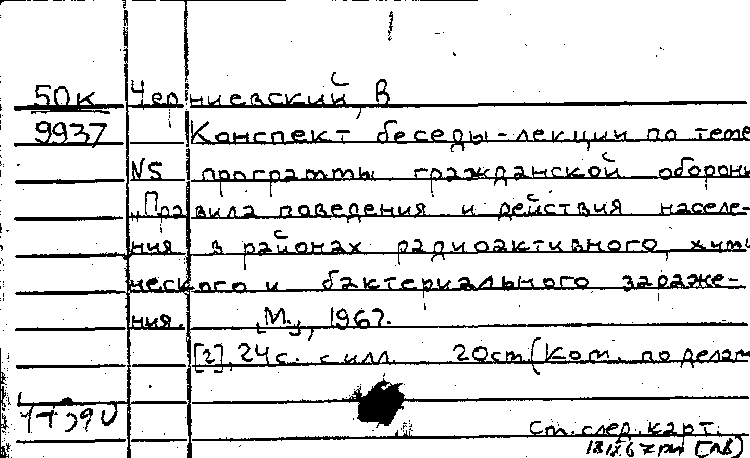 50к Черниевский, В
9937 Конспект беседы-лекции по теме
N5 программы гражданской оборони
„Правила поведения и действия населе-
ния в районах радиоактивного, хими
ческого и бактериального зараже-
ния. [М.], 1967.
[2], 24 с. с илл. 20см (Ком. по делам
Ст. след. карт.